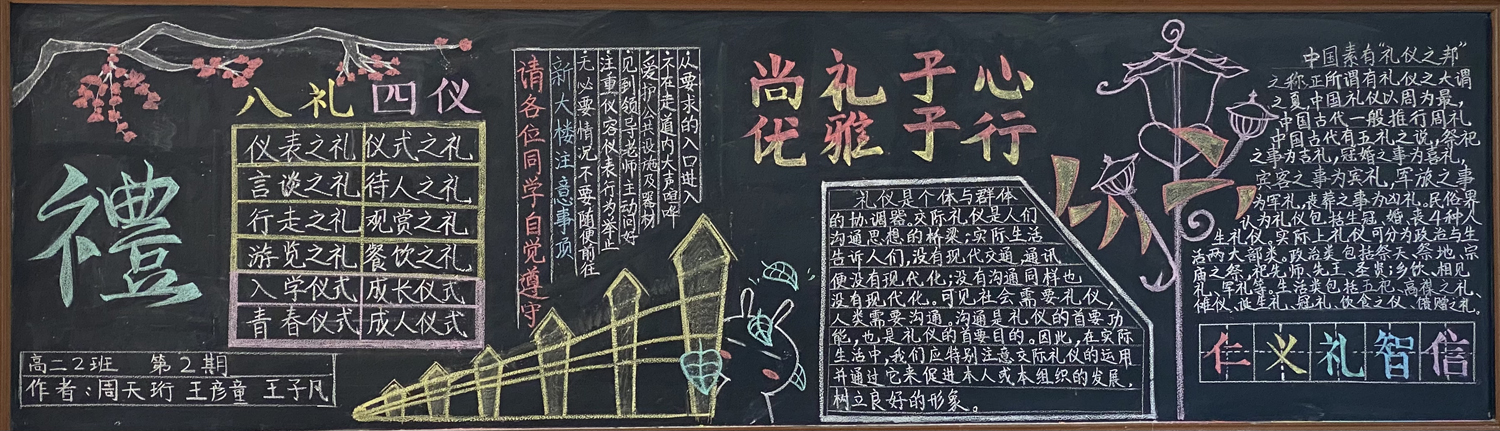 禮
八礼四仪
仪表之礼 仪式之礼
言谈之礼 待人之礼
行走之礼 观赏之礼
游览之礼 餐饮之礼
入学仪式 成长仪式
青春仪式 成人仪式
高二2班 第2期
作者:周天珩 王彦童 王子凡
·从要求的入口进入
·不在走道内大声喧哗
·爱护公共设施及器材
·见到领导老师主动问好
·注重仪容仪表行为举止
·无必要情况不要随便前往
新大楼注意事项
请各位同学自觉遵守
尚礼于心
优雅于行
礼仪是个体与群体
的协调器,交际礼仪是人们
沟通思想的桥梁;实际生活
告诉人们,没有现代交通,通讯
便没有现代化;没有沟通同样也
没有现代化。可见社会需要礼仪,
人类需要沟通。沟通是礼仪的首要功
能,也是礼仪的首要目的。因此,在实际
生活中,我们应特别注意交际礼仪的运用
并通过它来促进本人或本组织的发展,
树立良好的形象。
中国素有“礼仪之邦”
之称,正所谓有礼仪之大谓
之夏,中国礼仪以周为最,
中国古代一般推行周礼
中国古代有五礼之说,祭祀
之事为吉礼,冠婚之事为喜礼,
宾客之事为宾礼,军旅之事
为军礼,丧葬之事为凶礼。民俗界
认为礼仪包括生冠、婚、丧4种人
生礼仪。实际上礼仪可分为政治与生
活两大部类。政治类包括祭天、祭地、宗
庙之祭,祀先师、先王、圣贤;乡饮、相见
礼、军礼等。生活类包括五祀、高禖之礼、
傩仪、诞生礼、冠礼、饮食之仪、馈赠之礼。
仁义礼智信